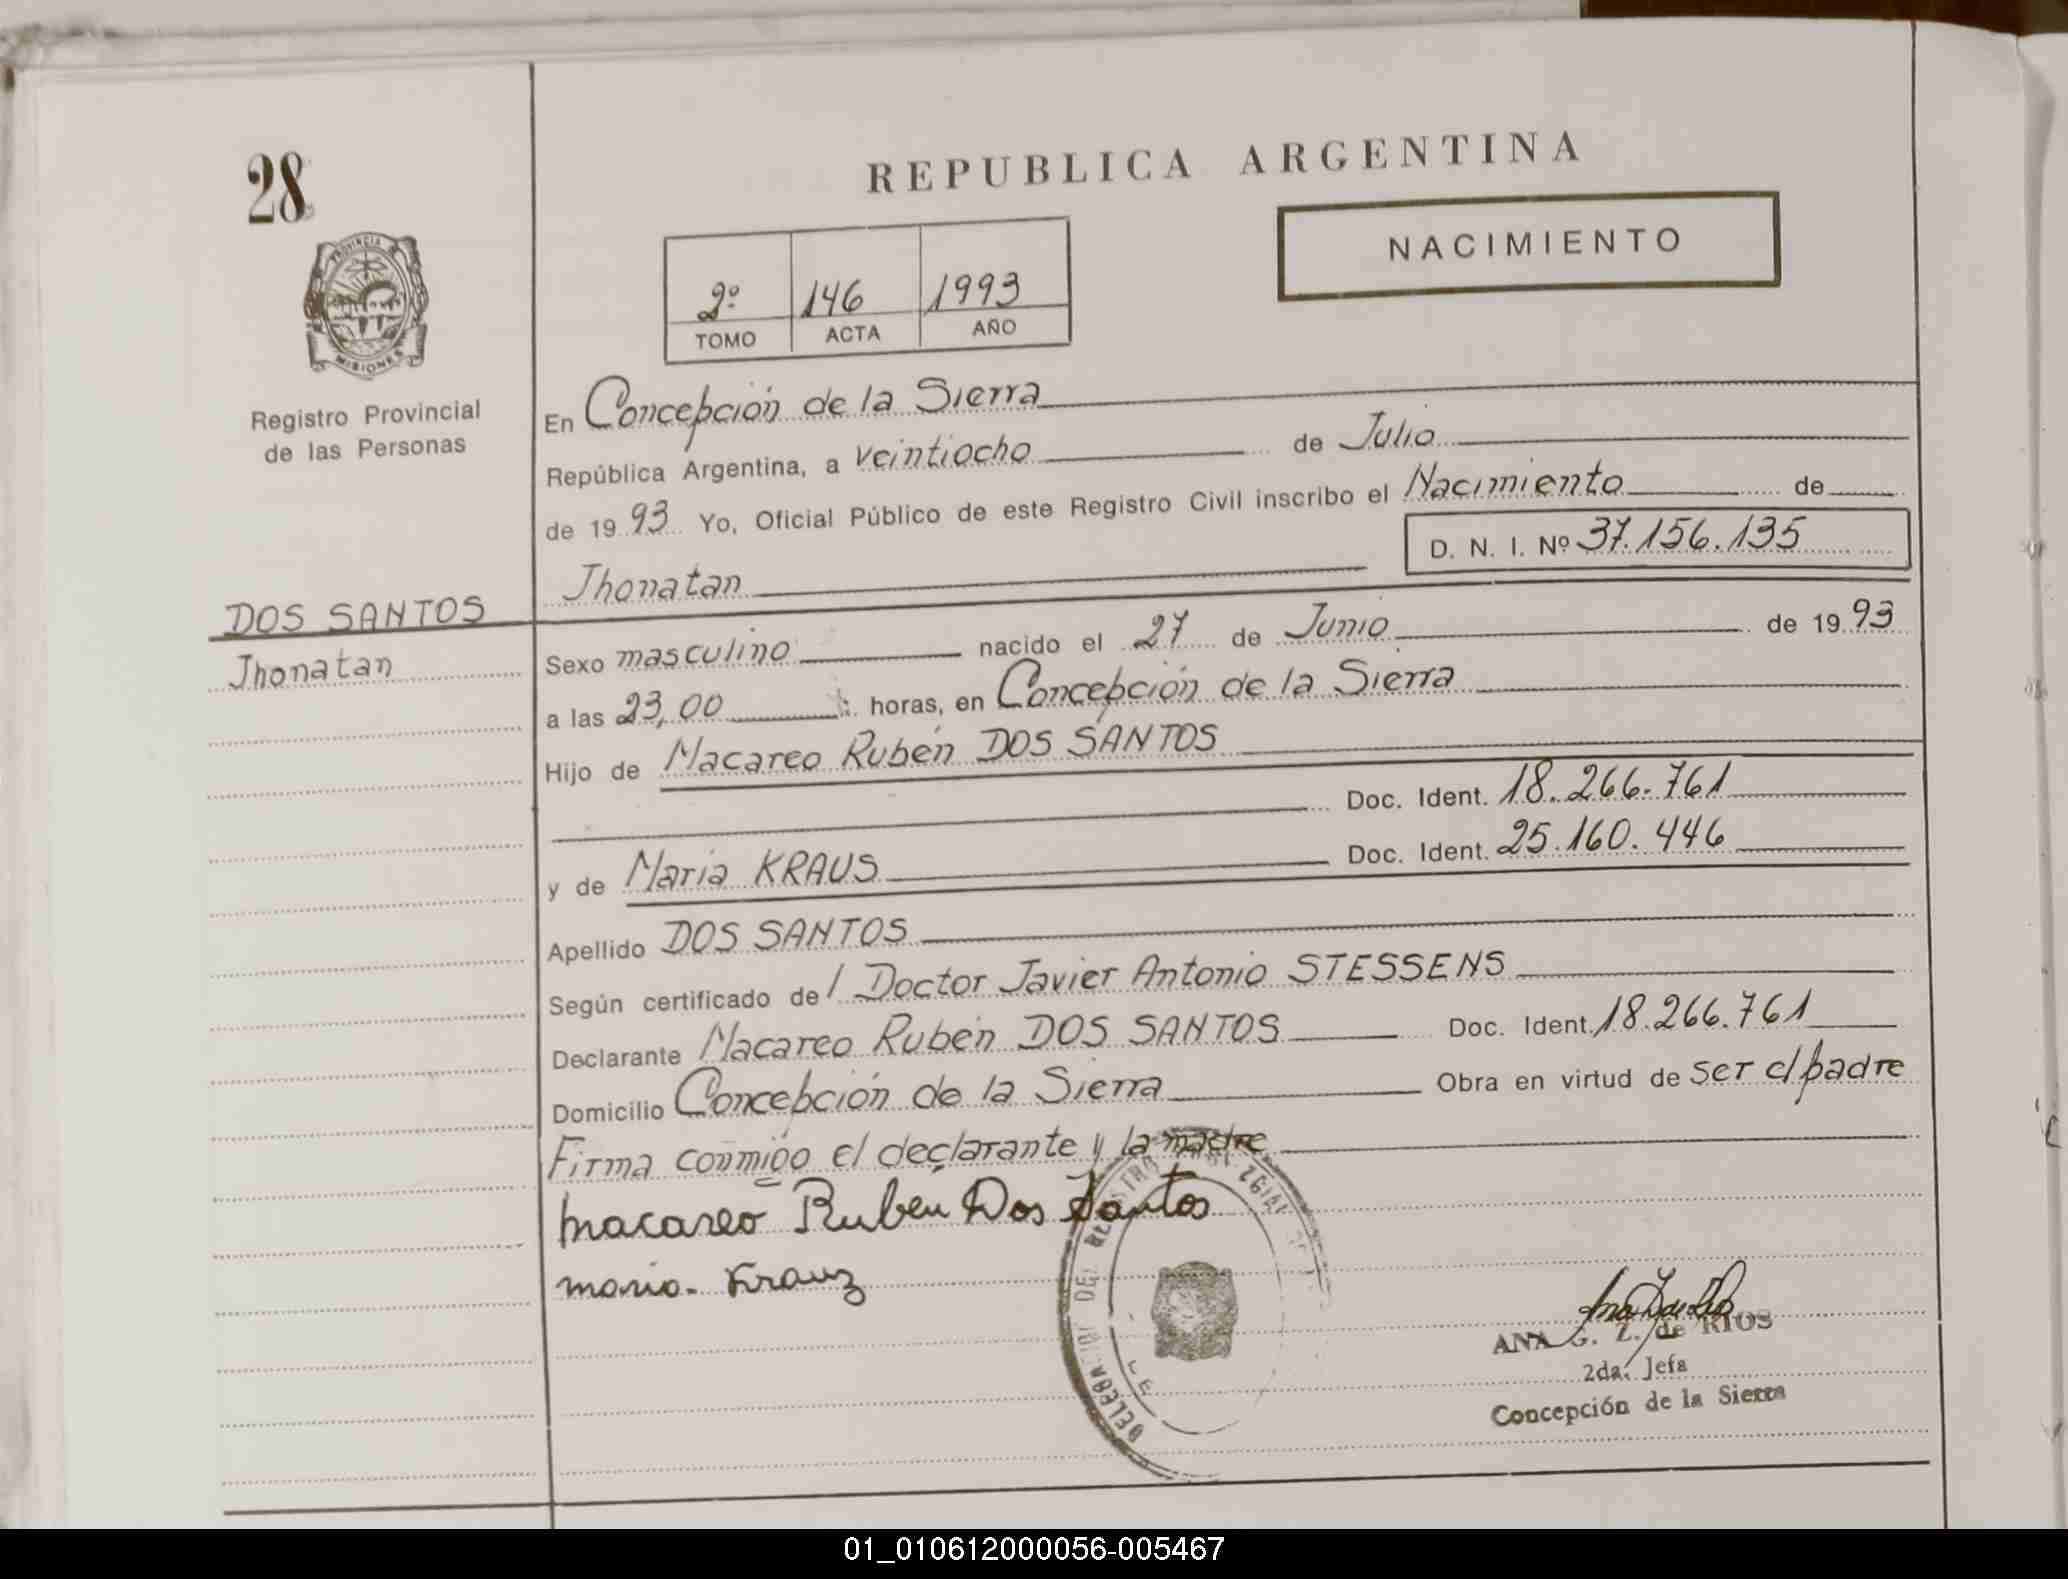 28
PROVINCIA DE
MISIONES
Registro Provincial
de las Personas
DOS SANTOS
Jhonatan
REPUBLICA ARGENTINA
NACIMIENTO
2º 146 1993
TOMO ACTA AÑO
En Concepción de la Sierra
República Argentina, a veintiocho de Julio
de 1993 Yo, Oficial Público de este Registro Civil inscribo el Nacimiento de
D. N. I. Nº 37.156.135
Jhonatan
Sexo masculino nacido el 27 de Junio de 1993
a las 23,00 horas, en Concepción de la Sierra
Hijo de Macareo Rubén DOS SANTOS
Doc. Ident. 18.266.761
y de María KRAUS Doc. Ident. 25.160.446
Apellido DOS SANTOS
Según certificado del Doctor Javier Antonio STESSENS
Declarante Macareo Rubén DOS SANTOS Doc. Ident. 18.266.761
Domicilio Concepción de la Sierra Obra en virtud de ser el padre
Firma conmigo el declarante y la madre
Macareo Ruben Dos Santos
maria. Krauz
DEL REGISTRO
ANA G. Z. de RIOS
2da. Jefa
Concepción de la Sierra
01_010612000056-005467